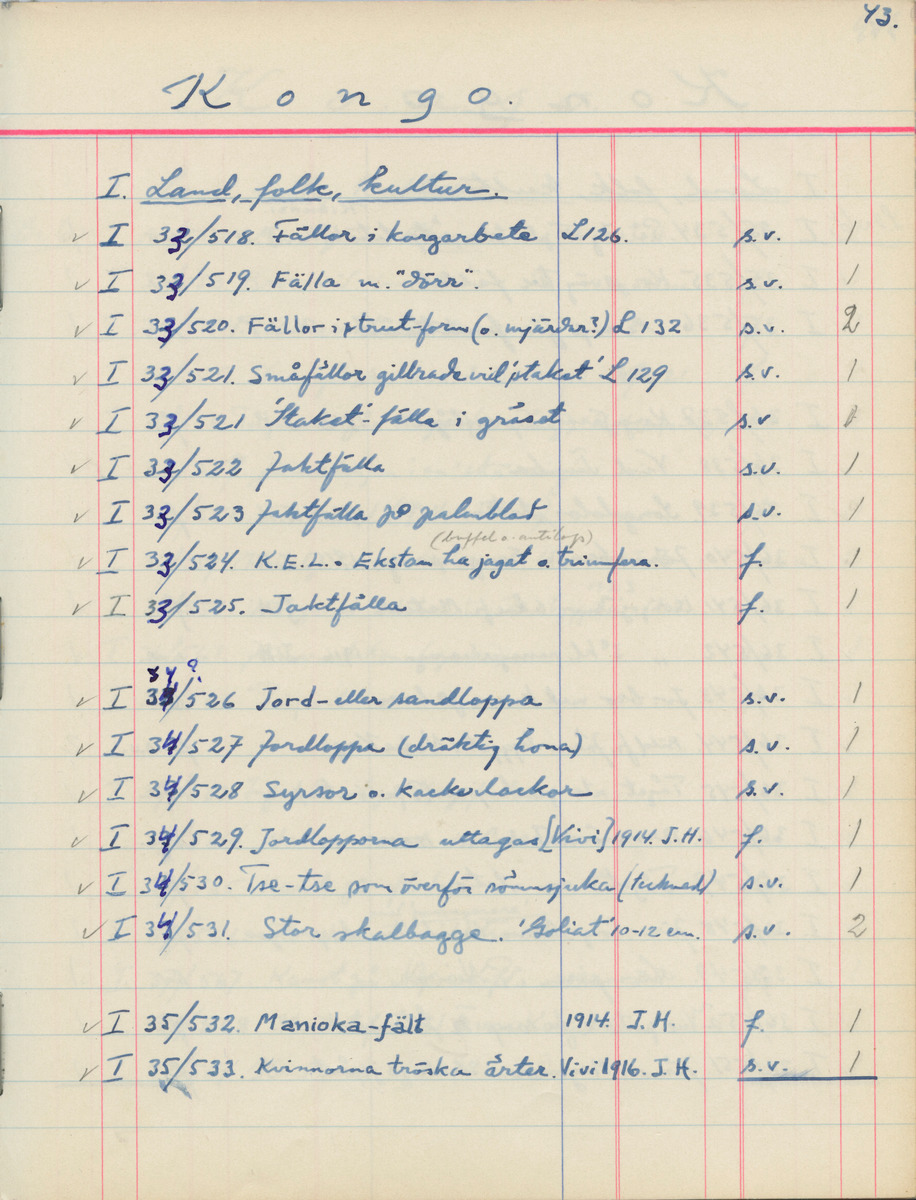 43.
Kongo.
I. Land, folk, kultur.
✓ I 33/518. Fällor i korgarbete L126. s.v. 1
✓ I 33/519. Fälla m. "dörr". s.v. 1
✓ I 33/520. Fällor i strut-form (o. mjärdar?) L 132 s.v. 2
✓ I 33/521. Småfällor gillrade vid 'staket' L 129 s.v. 1
✓ I 33/521 'Staket'-fälla i gräset s.v 1
✓ I 33/522 Jaktfälla s.v. 1
✓ I 33/523 Jaktfälla på palmblad s.v. 1
(buffel o. antilop)
✓ I 33/524. K.E.L. o Ekstam ha jagat o. triumfera. f. 1
✓ I 33/525. Jaktfälla f. 1
34?
✓ I 34/526 Jord- eller sandloppa s.v. 1
✓ I 34/527 Jordloppa (dräktig hona) s.v. 1
✓ I 34/528 Syrsor o. kackerlackor s.v. 1
✓ I 34/529. Jordlopporna uttagas [Vivi] 1914. J.H. f. 1
✓ I 34/530. Tse-tse som överför sömnsjuka (tecknad) s.v. 1
✓ I 34/531. Stor skalbagge. 'Goliat' 10-12 cm. s.v. 2
✓ I 35/532. Manioka-fält 1914. J.H. f. 1
✓ I 35/533. Kvinnorna tröska ärter. Vivi 1916. J.H. s.v. 1